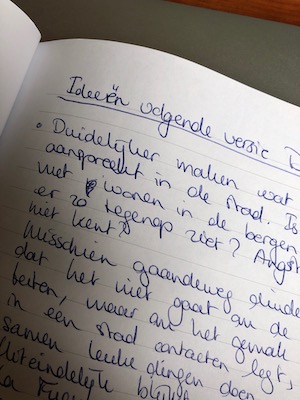 Ideeën volgende versie
• Duidelijker maken wat
aanspreekt in de stad. Is
niet wonen in de bergen
er zo tegenop ziet? Angst
niet kent?
Misschien gaandeweg
dat het niet gaat om de
maar om het gemak
in een stad contacten legt,
samen leuke dingen doen
Uiteindelijk blijkt